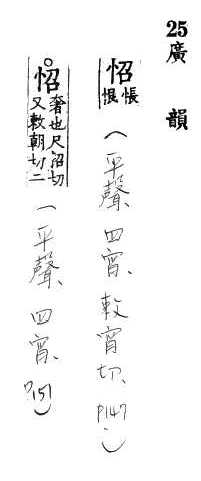 25廣韻
怊悵恨（平聲、四宵、敕宵切、P147、）
怊奢也尺沼切又敕朝切二（平聲、四宵、P151）